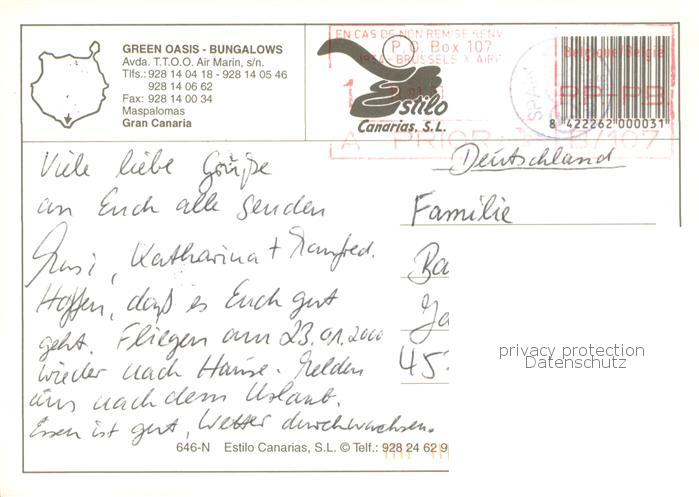 GREEN OASIS - BUNGALOWS
Avda. T.T.O.O. Air Marin, s/n.
Tlfs.: 928 14 04 18 - 928 14 05 46
928 14 06 62
Fax: 928 14 00 34
Maspalomas
Gran Canaria
EN CAS DE NON REMISE RENV
P.O. Box 107
1934-BRUSSELS X AIR
Estilo
Canarias, S.L.
A PRIOR B/107
SPAIN
Belgique/België
PP-PB
8 422262 000031
Viele liebe Grüße
an Euch alle senden
Katharina + Manfred.
Hoffen, daß es Euch gut
geht. Fliegen am 23.01.2000
wieder nach Hause. Melden
uns nach dem Urlaub.
Essen ist gut, Wetter durchwachsen.
Deutschland
Familie
Ba
Ja
45
privacy protection
Datenschutz
646-N Estilo Canarias, S.L. © Telf.: 928 24 62 9